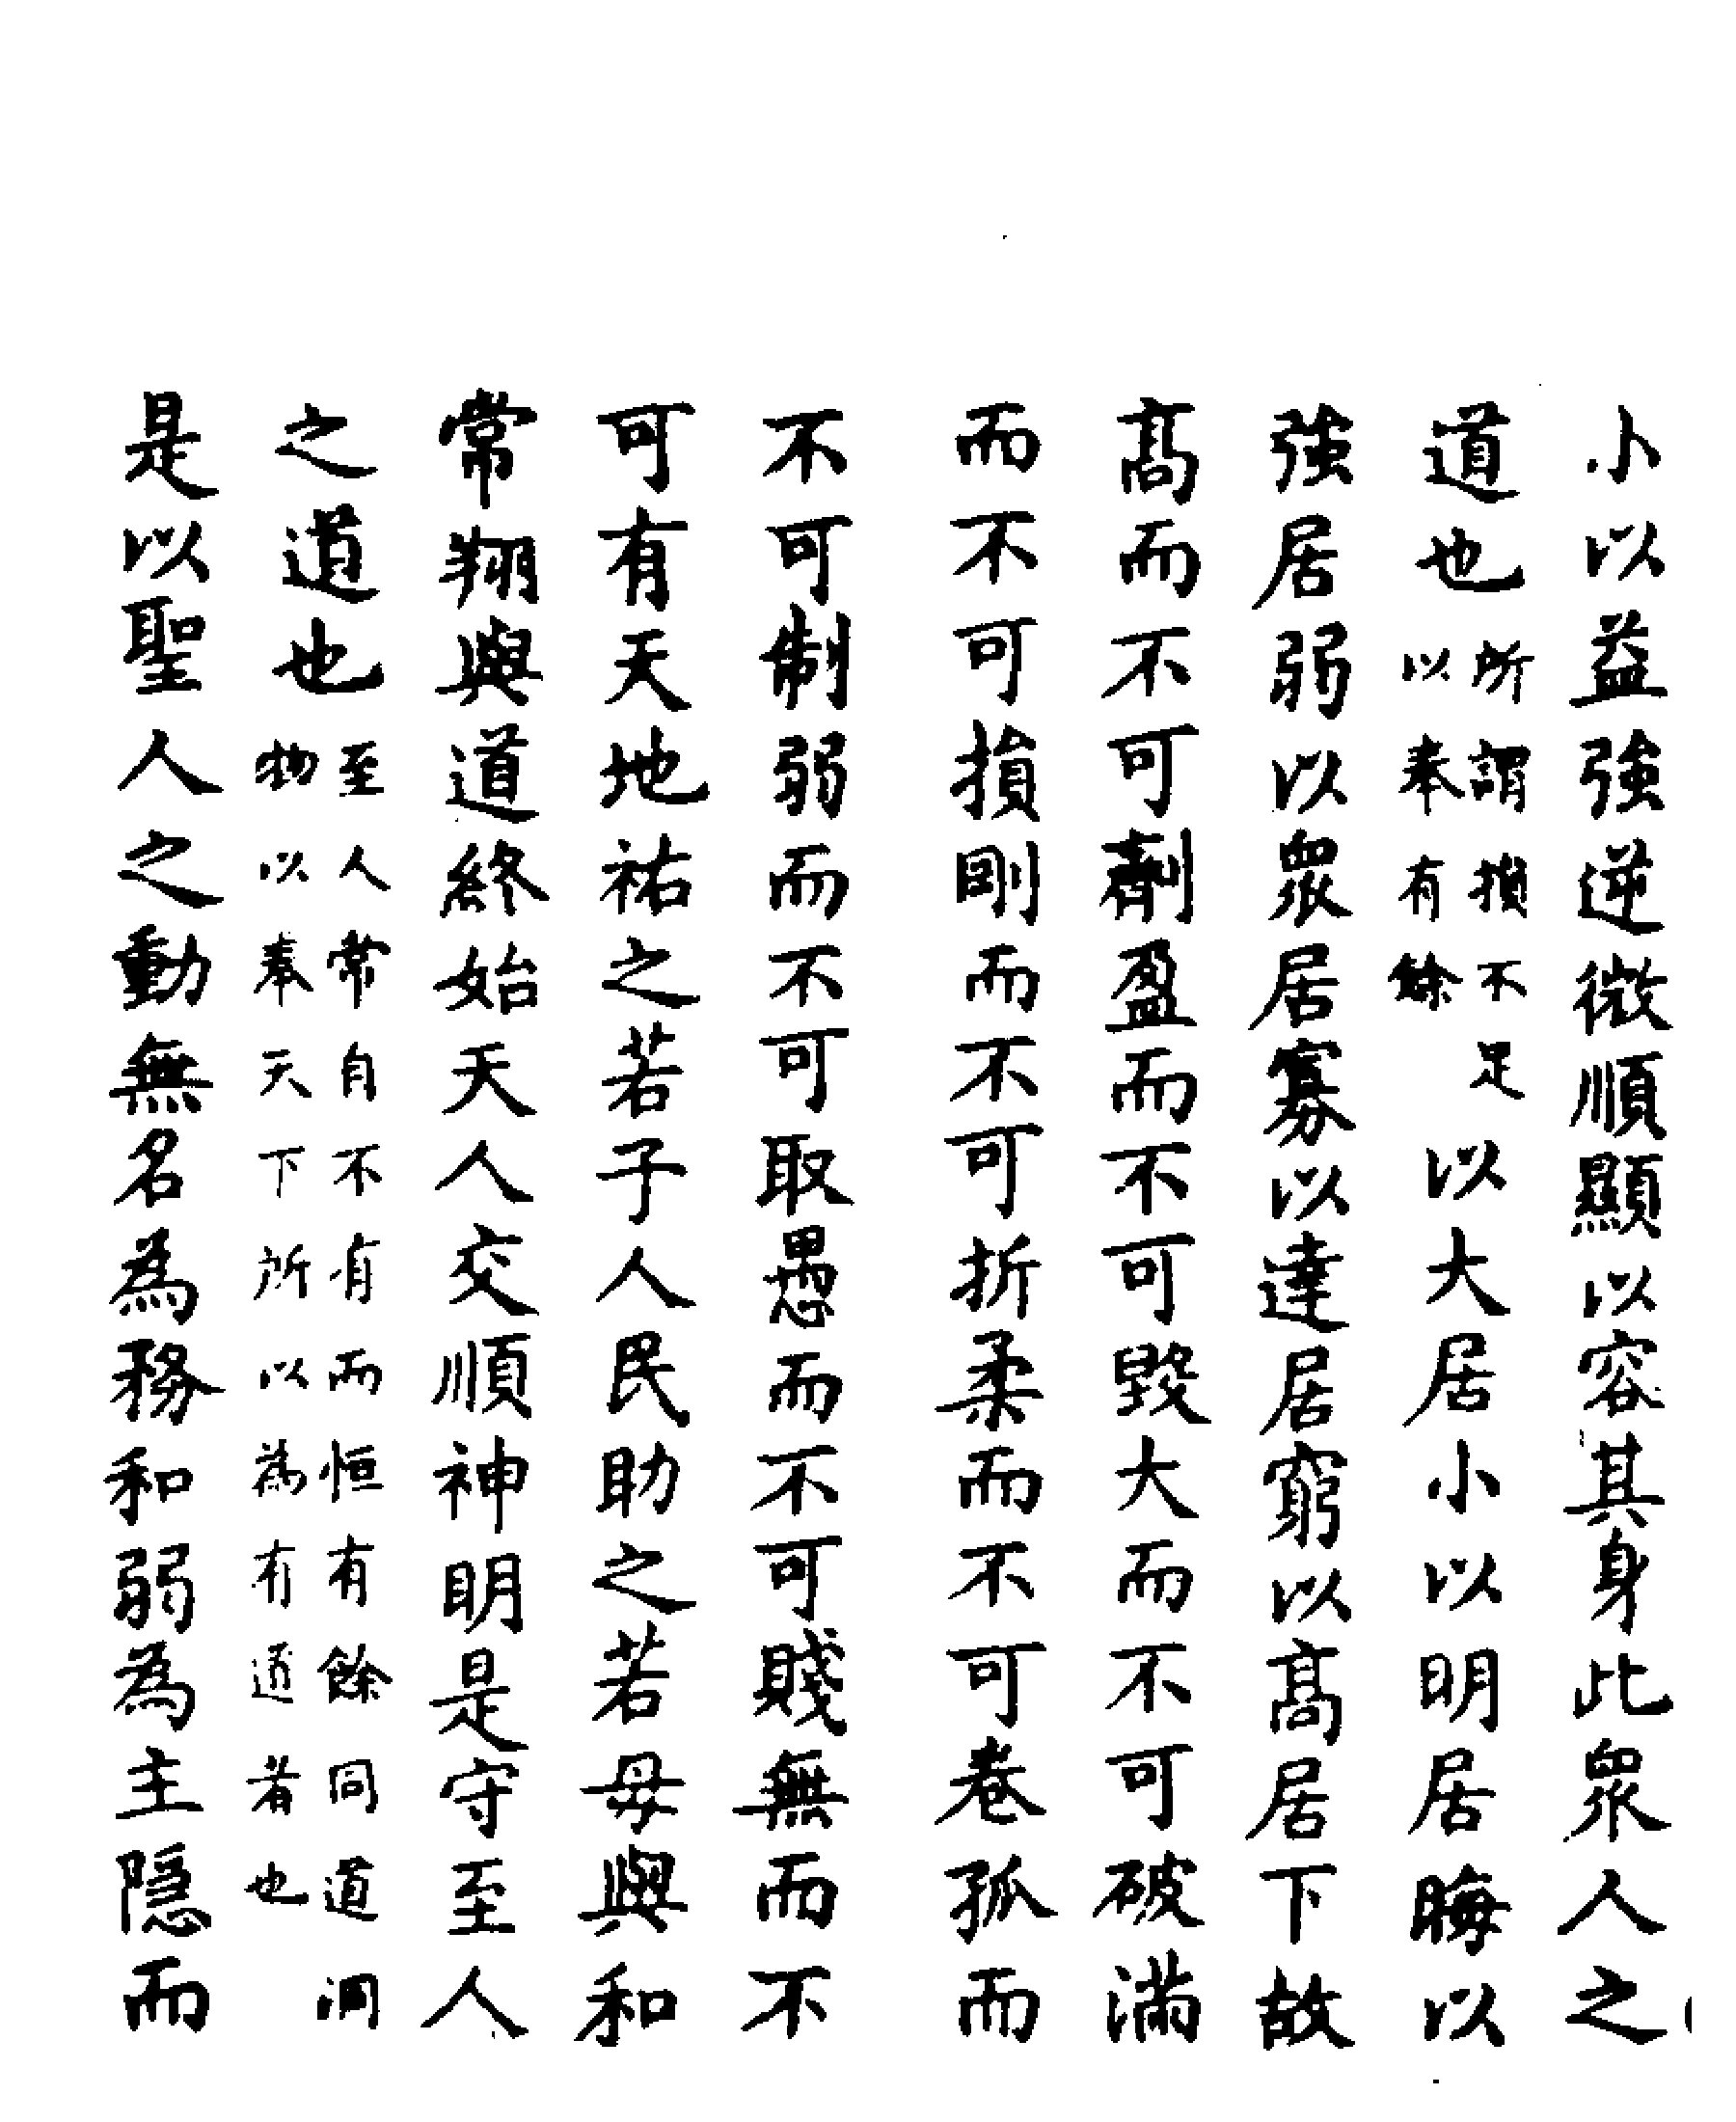 小以益強逆微順顯以容其身此眾人之
道也所謂損不足以奉有餘以大居小以明居晦以
強居弱以眾居寡以達居窮以髙居下故
髙而不可劑盈而不可毀大而不可破滿
而不可損剛而不可折柔而不可卷孤而
不可制弱而不可取愚而不可賤無而不
可有天地祐之若子人民助之若母與和
常翔與道終始天人交順神明是守至人
之道也至人常自不有而恒有餘同道洞物以奉天下所以為有道者也
是以聖人之動無名為務和弱為主隱而